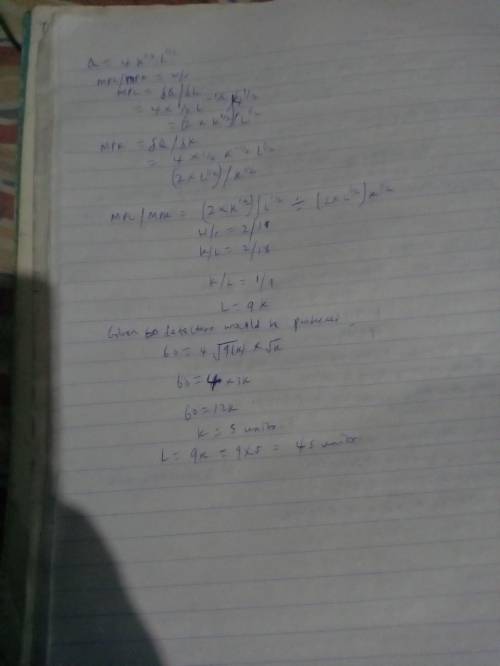 Q = 4 K^1/2 L^1/2
MPL/MPK = w/r
MPL = δQ/δL
= 4 x 1/2 L^-1/2 K^1/2
= (2 x K^1/2)/L^1/2
MPK = δQ/δK
= 4 x 1/2 x
(2 x L^1/2)/K^1/2
MPL/MPK = (2 x K^1/2)/L^1/2 ÷ (2 x L^1/2)/K^1/2
w/r = 2/18
K/L = 2/18
K/L = 1/9
L = 9K
Given 60 would be produced
60 = 4 √9(K) x √K
60 = 4 x 3K
60 = 12K
K = 5 units
L = 9K = 9x5 = 45 units